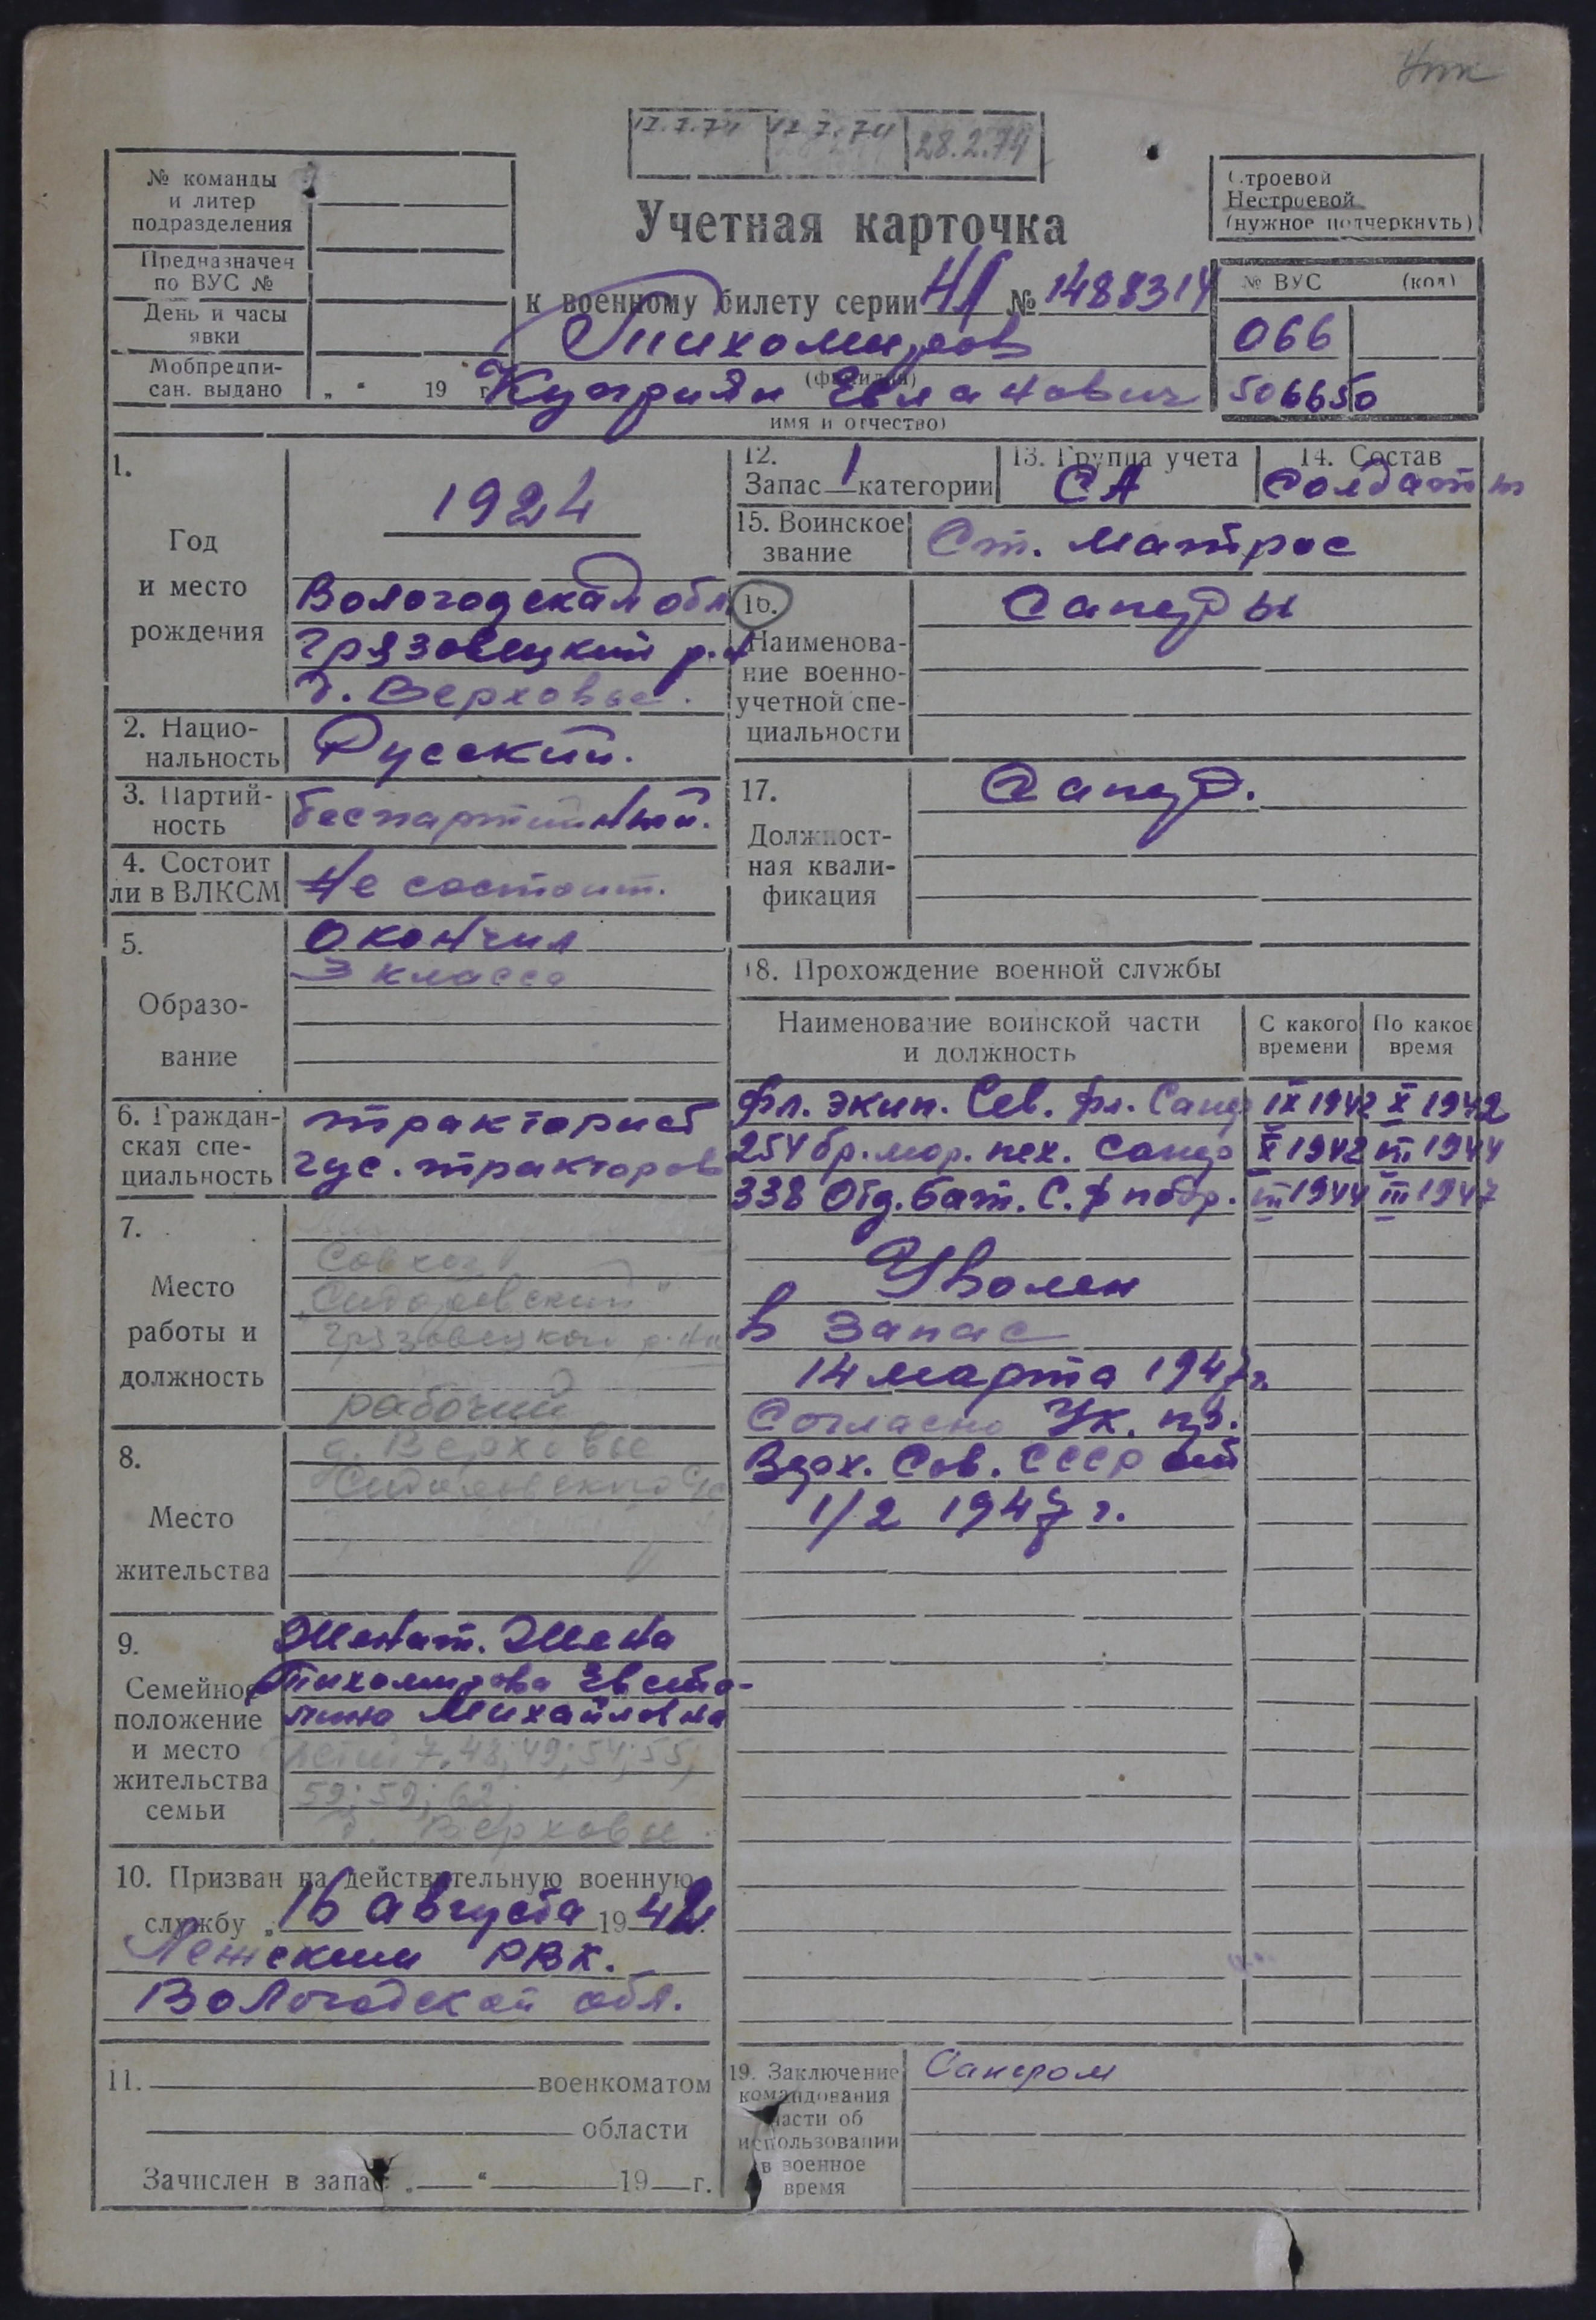 12.7.74 12.7.74 28.2.74
№ команды
и литер
подразделения
Предназначен
по ВУС №
День и часы
явки
Мобпредпи-
сан. выдано „ “ 19 г.
Учетная карточка
к военному билету серии НЛ № 1488314
Тихомиров
(фамилия)
Куприян Евланович
имя и отчество)
Строевой
Нестроевой
(нужное подчеркнуть)
№ ВУС (код)
066
506650
1.
Год
и место
рождения
1924
Вологодская обл
Грязовецкий р.н
д. Верховье.
2. Нацио-
нальность
Русский.
3. Партий-
ность
беспартийный.
4. Состоит
ли в ВЛКСМ
Не состоит.
5.
Образо-
вание
Окончил
3 класса
6. Граждан-
ская спе-
циальность
тракторист
гус. тракторов
7.
Место
работы и
должность
Совхоз
„Сидоровский"
Грязовецкой р-на
рабочий
8.
Место
жительства
д. Верховье
Сидоровского с/с
9.
Семейное
положение
и место
жительства
семьи
Женат. Жена
Тихомирова Евста-
лия Михайловна
Дети 7, 48; 49; 54; 55;
59; 59; 62;
д. Верховье.
10. Призван на действительную военную
службу „ 16 августа 1942
Лежским РВК.
Вологодской обл.
11. военкоматом
области
Зачислен в запас „ “ 19 г.
12.
Запас 1 категории
13. Группа учета
СА
14. Состав
Солдаты
15. Воинское
звание
Ст. матрос
16.
Наименова-
ние военно-
учетной спе-
циальности
Саперы
17.
Должност-
ная квали-
фикация
Сапер.
18. Прохождение военной службы
Наименование воинской части
и должность
С какого
времени
По какое
время
Фл. экип. Сев. фл. Сапер IX 1942 X 1942
254 бр. мор. пех. Сапер X 1942 III 1944
338 Отд. бат. С.Ф III 1944 III 1947
Уволен
в запас
14 марта 1947 г.
Согласно Ук. през.
Верх. Сов. СССР от
1/2 1947 г.
19. Заключение
командования
части об
использовании
в военное
время
Сапером